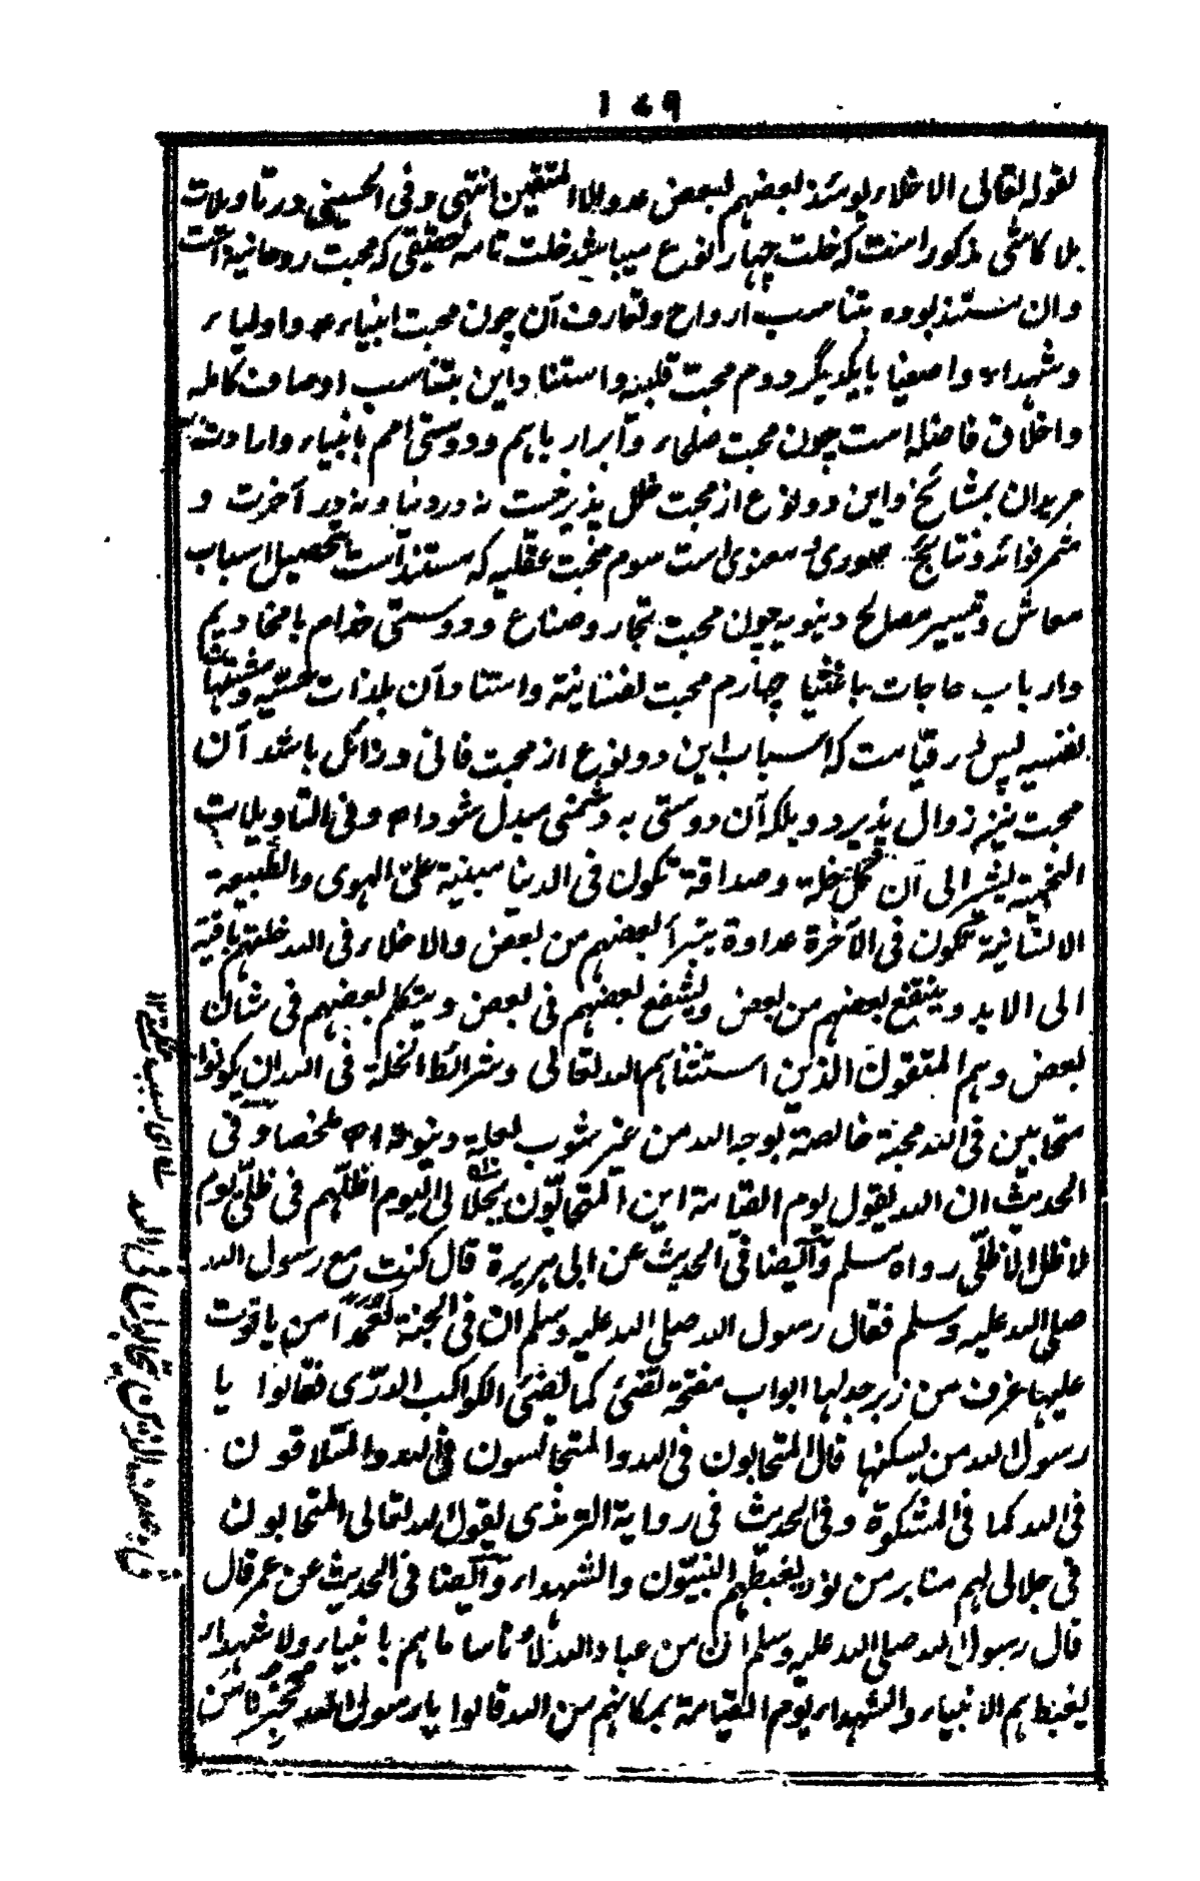 ١٧٩
لقوله تعالى الاخلاء يومئذ بعضهم لبعض عدو الا المتقين انتهى وفى الحسينى در تاويلات
بلا كاشى مذكور است كه خلت چهار نوع ميباشد خلت تامه حقيقى كه محبت روحانية است
وان مستند بوده بتناسب ارواح وتعارف آن چون محبت انبياء و اولياء
وشهداء واصفيا بايكديگر دوم محبت قلبيه واستناد اين بتناسب اوصاف كامله
واخلاق فاضله است چون محبت صلحاء و ابرار باهم ودوستى امم بانبياء وارادت
مريدان بمشائخ واين دو نوع از محبت خلل پذير نيست نه در دنيا ونه در آخرت و
مثمر فوائد ونتائج صورى و معنوى است سوم محبت عقليه كه مستند است بتحصيل اسباب
معاش وتيسير مصالح دنيويه چون محبت تجار وصناع ودوستى خدام بامخاديم
وارباب حاجات باغنيا چهارم محبت نفسانية واستناد آن بلذات حسيه ومشتهيات
نفسيه پس در قيامت كه اسباب اين دو نوع از محبت فانى وزائل باشد آن
محبت نيز زوال پذيرد و بلكه آن دوستى به دشمنى مبدل شود اه وفى التاويلات
النجمية يشير الى ان كل خلة وصداقة تكون فى الدنيا مبنية على الهوى والطبيعة
الانسانية تكون فى الآخرة عداوة يتبرأ بعضهم من بعض والاخلاء فى الله خلتهم باقية
الى الابد وينتفع بعضهم من بعض ويشفع بعضهم فى بعض ويتكلم بعضهم فى شان
بعض وهم المتقون الذين استثناهم الله تعالى وشرائط الخلة فى الله ان يكونوا
متحابين فى الله محبة خالصة لوجه الله من غير شوب لعلة دنيوية اه ملخصا وفى
الحديث ان الله يقول يوم القيامة اين المتحابون بجلالى اليوم اظلهم فى ظلى يوم
لا ظل الا ظلى رواه مسلم وايضا فى الحديث عن ابى هريرة قال كنت مع رسول الله
صلى الله عليه وسلم فقال رسول الله صلى الله عليه وسلم ان فى الجنة لعمدا من ياقوت
عليها غرف من زبرجد لها ابواب مفتحة تضئ كما يضئ الكواكب الدرى فقالوا يا
رسول الله من يسكنها قال المتحابون فى الله والمتجالسون فى الله والمتلاقون
فى الله كما فى المشكوة وفى الحديث فى رواية الترمذى يقول الله تعالى المتحابون
فى جلالى لهم منابر من نور يغبطهم النبيون والشهداء وايضا فى الحديث عن عمر قال
قال رسول الله صلى الله عليه وسلم ان من عباد الله لاناسا ما هم بانبياء ولا شهداء
يغبطهم الانبياء والشهداء يوم القيامة بمكانهم من الله قالوا يا رسول الله تخبرنا من